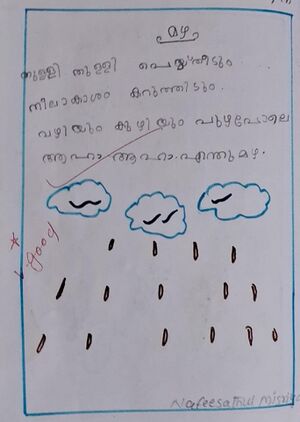 മഴ
തുള്ളി തുള്ളി പെയ്തീടും
നീലാകാശം കറുത്തിടും.
വഴിയും കുഴിയും പുഴപോലെ
ആഹാ ആഹാ എന്തു മഴ.
good
Nafeesathul Misriya